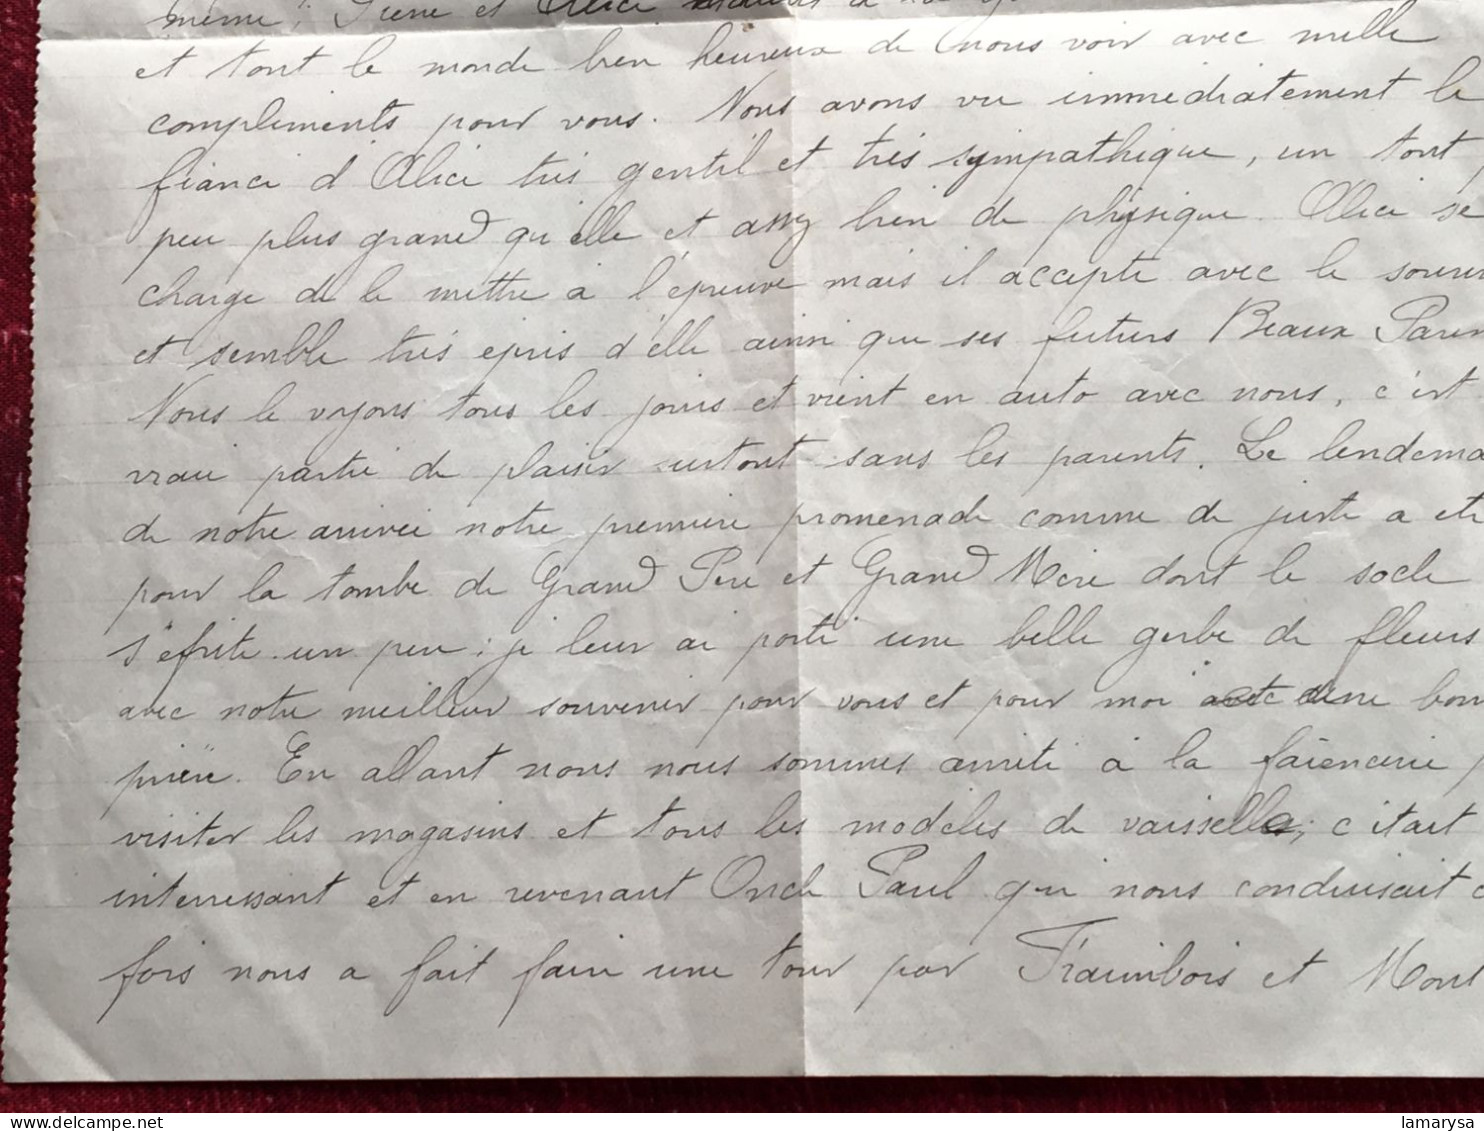 même; Irène et Alice
et tout le monde bien heureux de nous voir avec mille
compliments pour vous. Nous avons vu immediatement le
fiancé d'Alice très gentil et très sympathique, un tout
peu plus grand qu'elle et assez bien de physique. Alice se
charge de le mettre à l'épreuve mais il accepte avec le
et semble très épris d'elle ainsi que ses futurs Beaux
Nous le voyons tous les jours et vient en auto avec nous, c'est
vraie partie de plaisir surtout sans les parents. Le
de notre arrivée notre première promenade comme de juste a
pour la tombe de Grand Père et Grand Mère dont le socle
s'éfrite un peu; je leur ai porté une belle gerbe de fleurs
avec notre meilleur souvenir pour vous et pour moi une
prière. En allant nous nous sommes arrêté à la faïencerie
visiter les magasins et tous les modèles de vaisselle; c'était
interressant et en revenant Oncle Paul qui nous conduisait
fois nous a fait faire une tour par Fraimbois et Mont
lamarysa